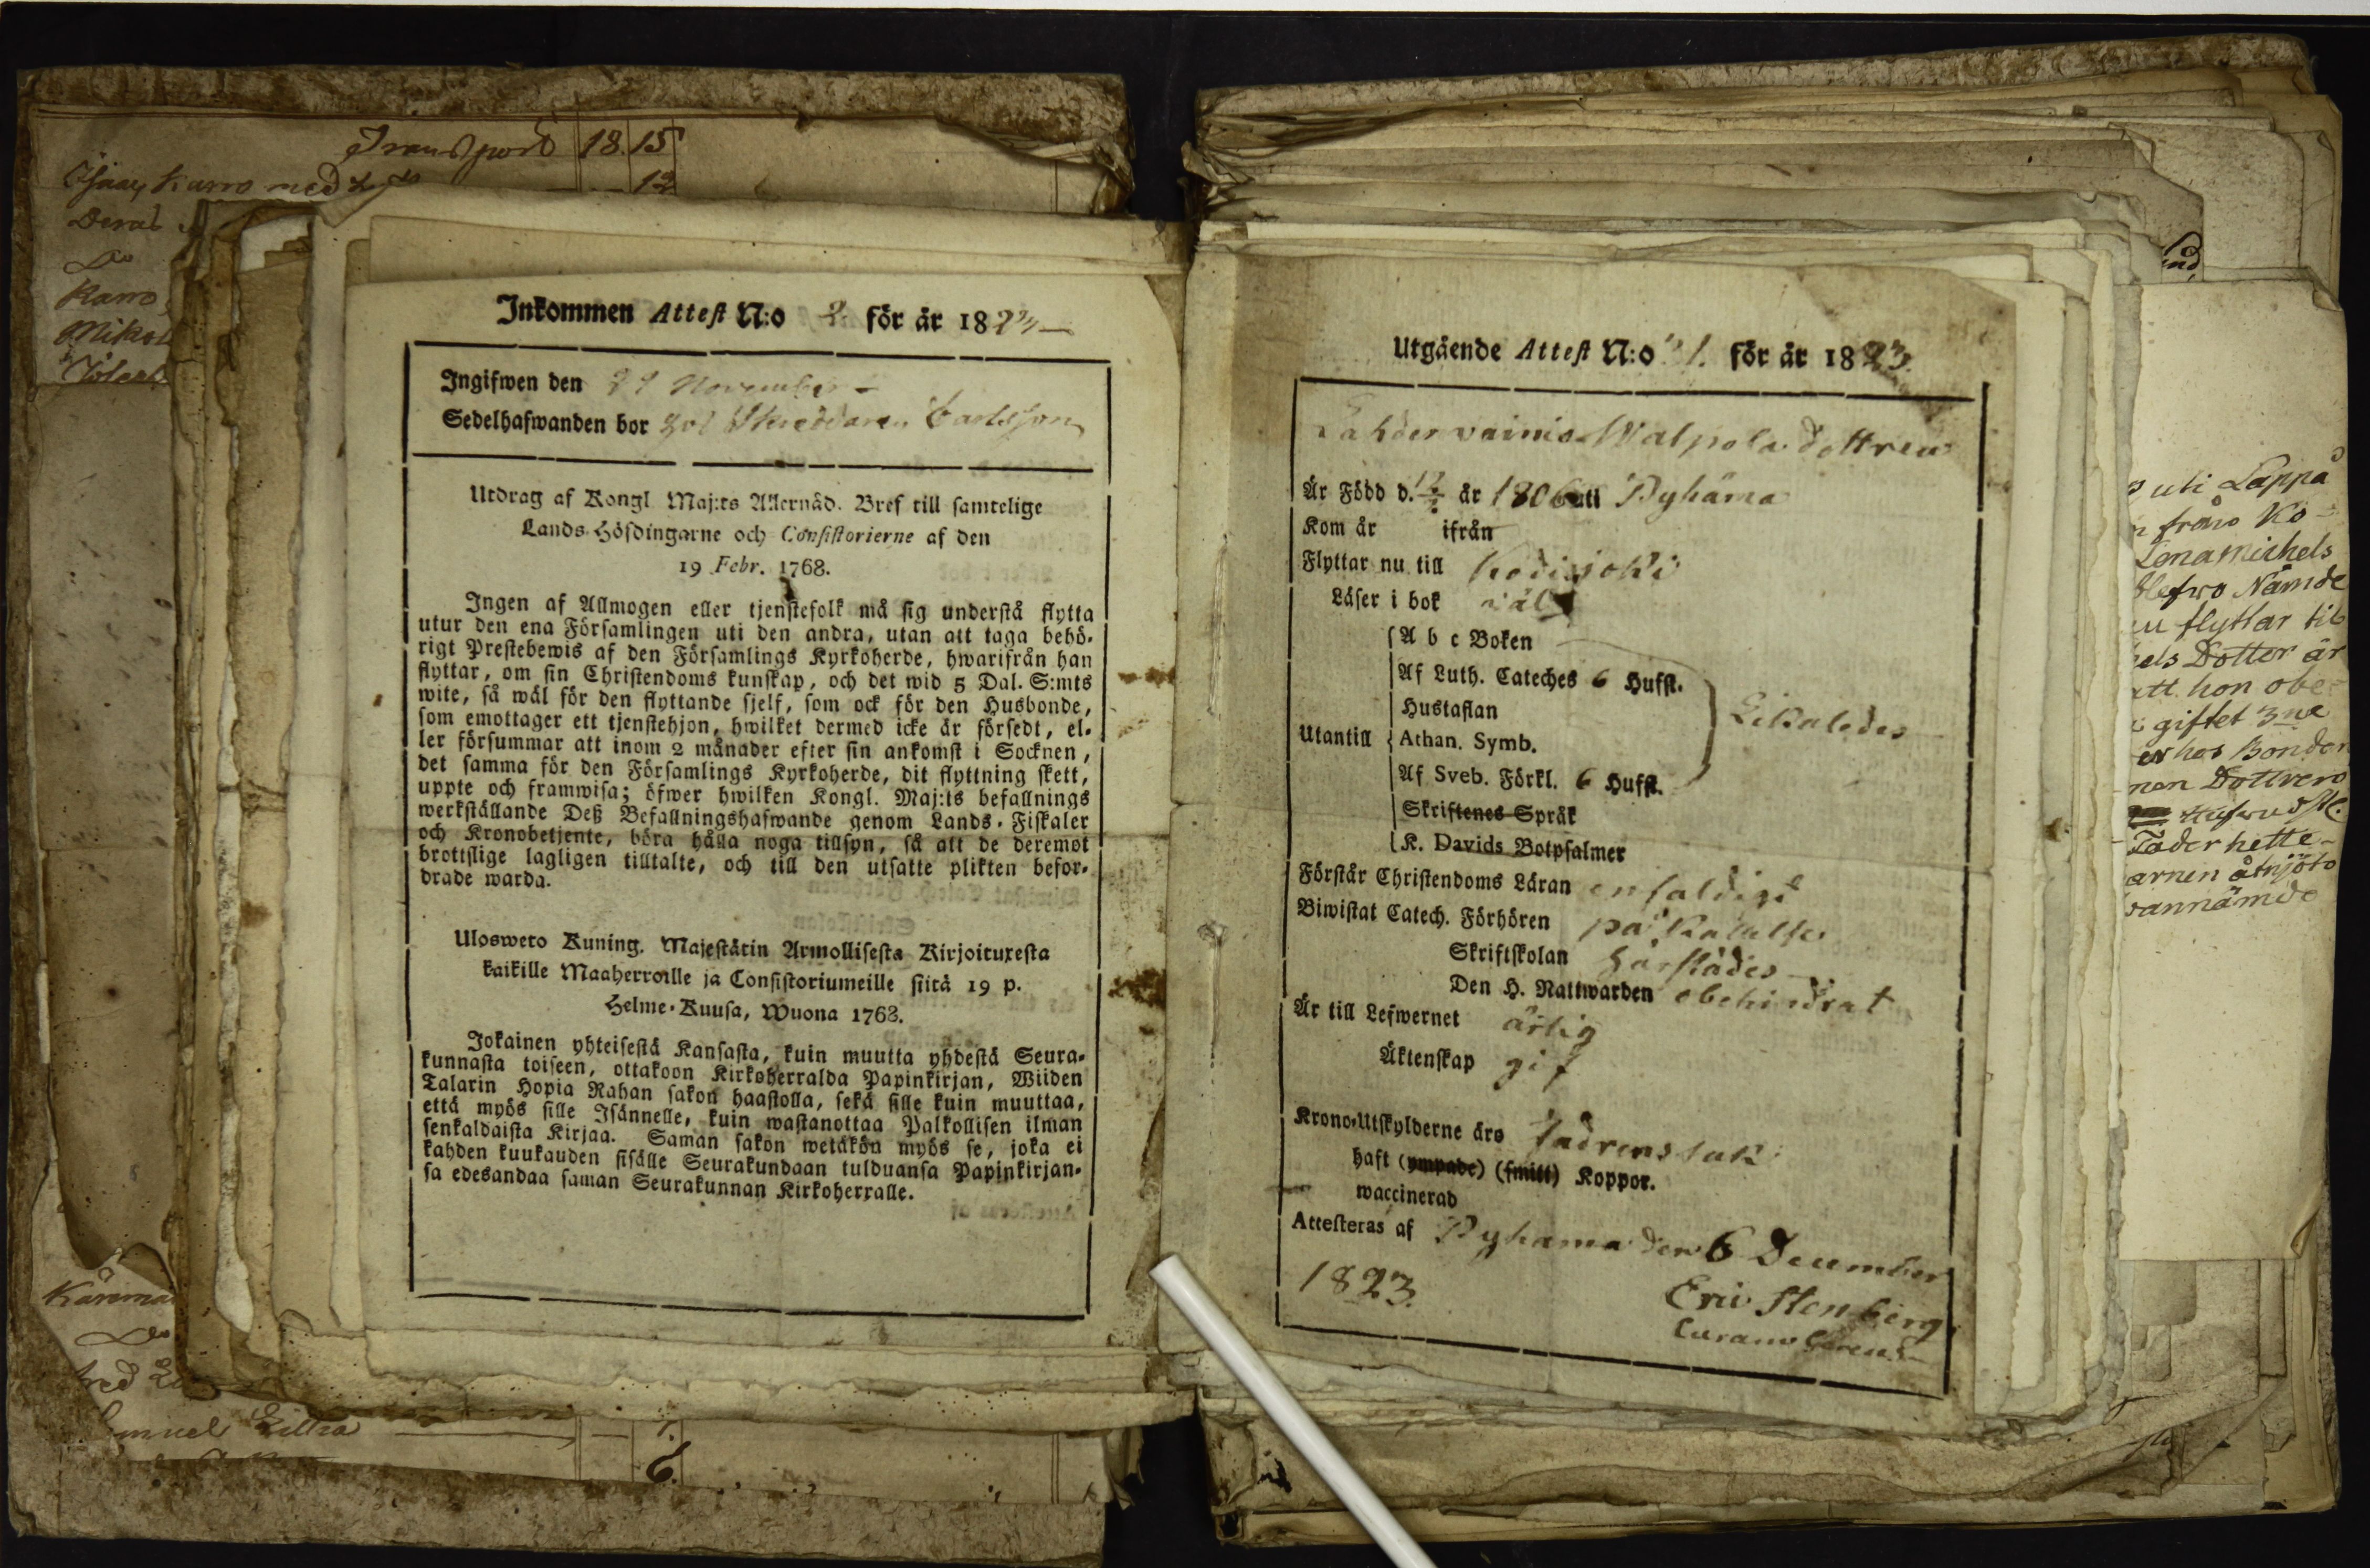 Transport 18. 15
12
Karro
Do
Inkommen Attest N:o 2 för år 182
Ingifwen den 29 November
Sedelhafwanden bor Carlsson
Utdrag af Kongl Maj:ts Allernåd. Bref till samtelige
Lands-Höfdingarne och Consistorierne af den
19 Febr. 1768.
Ingen af Allmogen eller tjenstefolk må sig understå flytta
utur den ena Församlingen uti den andra, utan att taga behö-
rigt Prestebewis af den Församlings Kyrkoherde, hwarifrån han
flyttar, om sin Christendoms kunskap, och det wid 5 Dal. S:mts
wite, så wäl för den flyttande sjelf, som ock för den Husbonde,
som emottager ett tjenstehjon, hwilket dermed icke är försedt, el-
ler försummar att inom 2 månader efter sin ankomst i Socknen,
det samma för den Församlings Kyrkoherde, dit flyttning skett,
uppte och framwisa; öfwer hwilken Kongl. Maj:ts befallnings
werkställande Deß Befallningshafwande genom Lands-Fiskaler
och Kronobetjente, böra hålla noga tillsyn, så att de deremot
brottslige lagligen tilltalte, och till den utsatte plikten befor-
drade warda.
Ulosweto Kuning. Majestätin Armollisesta Kirjoituxesta
kaikille Maaherroille ja Consistoriumeille siitä 19 p.
Helme-Kuusa, Wuona 1768.
Jokainen yhteisestä Kansasta, kuin muutta yhdestä Seura-
kunnasta toiseen, ottakoon Kirkoherralda Papinkirjan, Wiiden
Talarin Hopia Rahan sakon haastolla, sekä sille kuin muuttaa,
että myös sille Isännelle, kuin wastanottaa Palkollisen ilman
senkaldaista Kirjaa. Saman sakon wetäkön myös se, joka ei
kahden kuukauden sisälle Seurakundaan tulduansa Papinkirjan-
sa edesandaa saman Seurakunnan Kirkoherralle.
6.
Utgående Attest N:o 31. för år 1823.
Walpola dottren
Är Född d. 12 år 1806 uti Pyhäma
Kom år ifrån
Flyttar nu till Hodisjoki
Läser i bok wäl
A b c Boken
Af Luth. Cateches 6 Hufst.
Hustaflan
Likaledes
Utantill
Athan. Symb.
Af Sveb. Förkl. 6 Hufst.
Skriftenes Språk
K. Davids Botpsalmer
Förstår Christendoms Läran enfaldigt
Biwistat Catech. Förhören på kallelse
Skriftskolan härstädes
Den H. Nattwarden obehindrat
Är till Lefwernet ärlig
Äktenskap gif
Krono-Utskylderne äro
haft (ympade) (smitt) Koppor.
waccinerad
Attesteras af Pyhama den 6 December
1823.
Eric Stenberg
uti Lappå
från Ko-
Lena Michels
Nämde
flyttar til
Dotter är
att hon obe-
giftet 3ne
hos Bonden
Dottren
hette
arnen åtnjöto